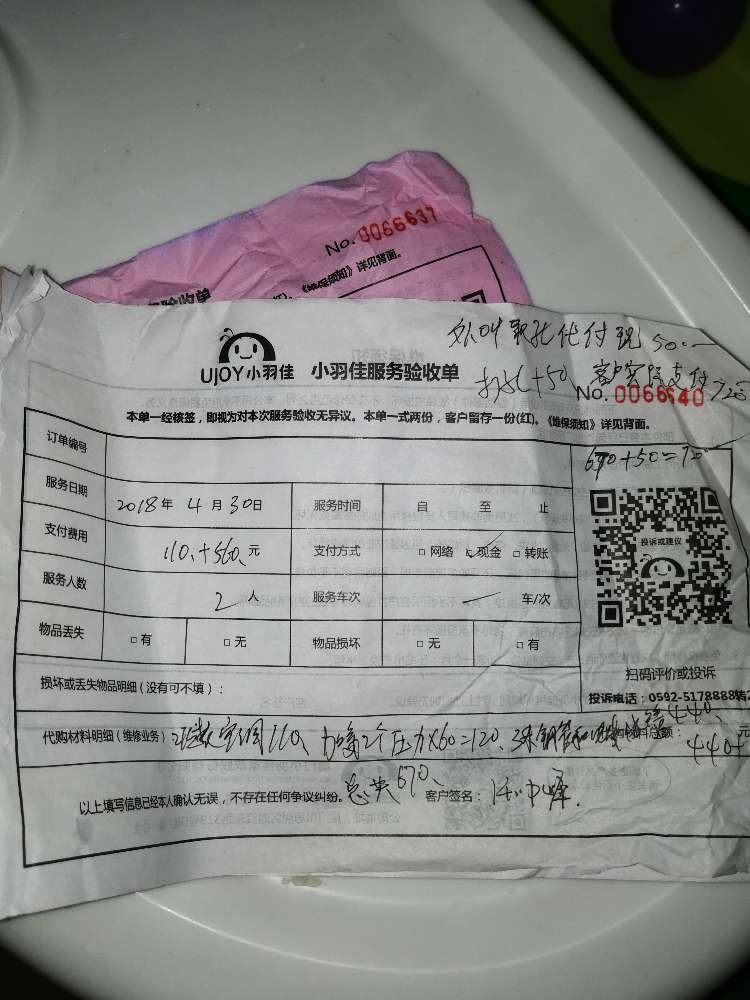 No. 0066637
验收单
《维保须知》详见背面。
代付现 50.一
UJOY小羽佳 小羽佳服务验收单
打孔+50 客户实际支付720
No. 0066640
本单一经核签，即视为对本次服务验收无异议。本单一式两份，客户留存一份(红)。《维保须知》详见背面。
订单编号
670+50=720
服务日期 2018年 4月30日 服务时间 自 至 止
支付费用 110.+560.元 支付方式 □网络 ☑现金 □转账
投诉或建议
服务人数 2人 服务车次 车/次
物品丢失 □有 □无 物品损坏 □无 □有
扫码评价或投诉
损坏或丢失物品明细（没有可不填）：
投诉电话：0592-5178888转2
代购材料明细（维修业务） 110、 2个压力X60=120、 440、 料总额： 元
440+
以上填写信息已经本人确认无误，不存在任何争议纠纷。 总共670、 客户签名：